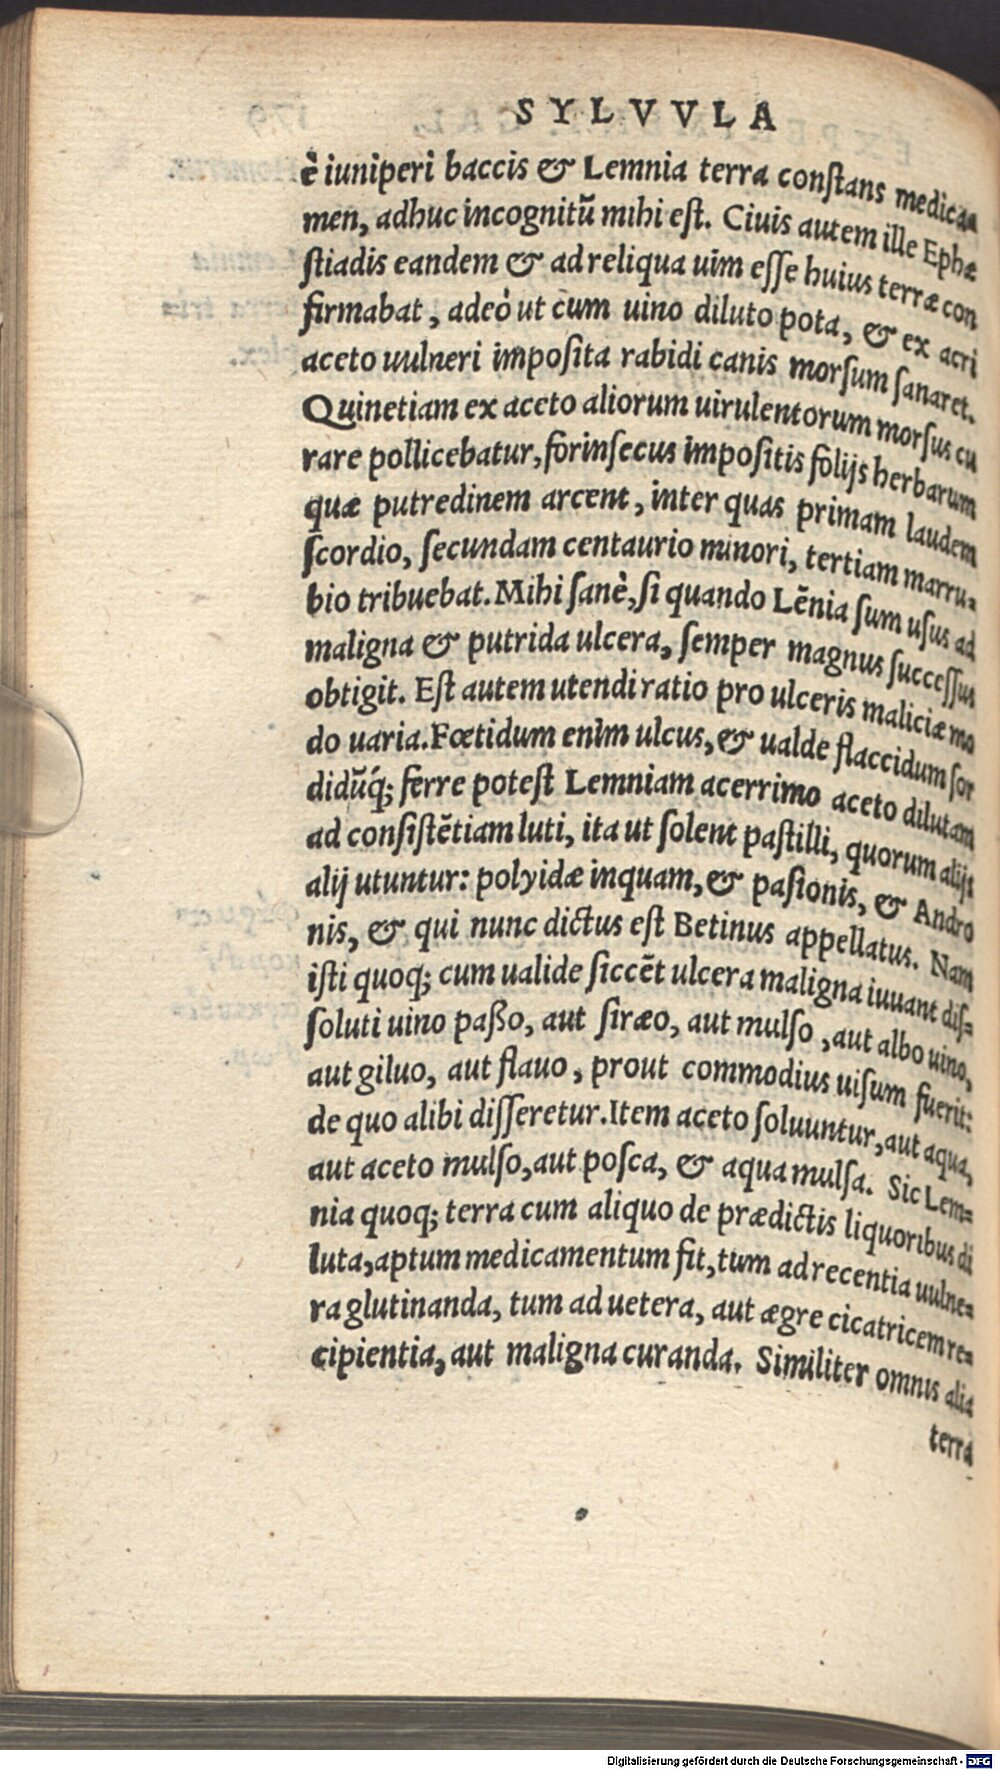 SYLVVLA
è iuniperi baccis & Lemnia terra conſtans medica=
men, adhuc incognitũ mihi eſt. Ciuis autem ille Ephæ
ſtiadis eandem & ad reliqua uim eſſe huius terræ con
firmabat, adeò ut cum uino diluto pota, & ex acri
aceto uulneri impoſita rabidi canis morſum ſanaret.
Quinetiam ex aceto aliorum uirulentorum morſus cu
rare pollicebatur, forinſecus impoſitis folijs herbarum
quæ putredinem arcent, inter quas primam laudem
ſcordio, ſecundam centaurio minori, tertiam marru=
bio tribuebat. Mihi ſanè, ſi quando Lẽnia ſum uſus ad
maligna & putrida ulcera, ſemper magnus ſucceſſus
obtigit. Eſt autem utendi ratio pro ulceris maliciæ mo
do uaria. Fœtidum enim ulcus, & ualde flaccidum ſor
didũq́; ferre poteſt Lemniam acerrimo aceto dilutam
ad conſiſtẽtiam luti, ita ut ſolent paſtilli, quorum alijs
alij utuntur: polyidæ inquam, & paſionis, & Andro
nis, & qui nunc dictus eſt Betinus appellatus. Nam
iſti quoq; cum ualide ſiccẽt ulcera maligna iuuant diſ=
ſoluti uino paßo, aut ſiræo, aut mulſo, aut albo uino,
aut giluo, aut flauo, prout commodius uiſum fuerit:
de quo alibi diſſeretur. Item aceto ſoluuntur, aut aqua,
aut aceto mulſo, aut poſca, & aqua mulſa. Sic Lem=
nia quoq; terra cum aliquo de prædictis liquoribus di
luta, aptum medicamentum fit, tum ad recentia uulne=
ra glutinanda, tum ad uetera, aut ægre cicatricem re=
cipientia, aut maligna curanda. Similiter omnis alia
terra
Digitalisierung gefördert durch die Deutsche Forschungsgemeinschaft - DFG